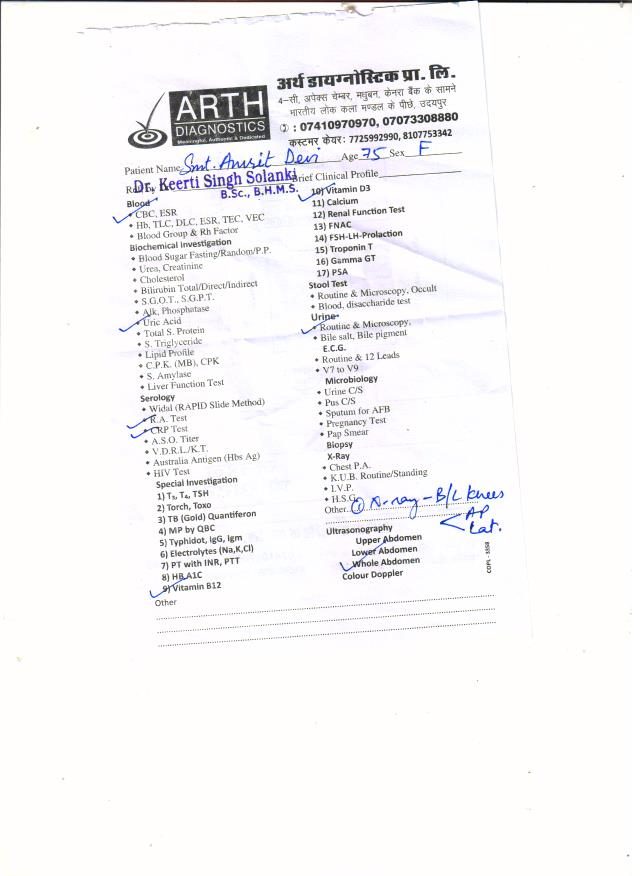 ARTH
DIAGNOSTICS
Meaningful, Authentic & Dedicated
अर्थ डायग्नोस्टिक प्रा. लि.
4-सी, अपेक्स चेम्बर, मधुबन, केनरा बैंक के सामने
भारतीय लोक कला मण्डल के पीछे, उदयपुर
✆ : 07410970970, 07073308880
कस्टमर केयर: 7725992990, 8107753342
Patient Name Smt. Amrit Devi Age 75 Sex F
Dr. Keerti Singh Solanki Brief Clinical Profile
B.Sc., B.H.M.S.
Blood
CBC, ESR
Hb, TLC, DLC, ESR, TEC, VEC
Blood Group & Rh Factor
Biochemical Investigation
Blood Sugar Fasting/Random/P.P.
Urea, Creatinine
Cholesterol
Bilirubin Total/Direct/Indirect
S.G.O.T., S.G.P.T.
Alk, Phosphatase
Uric Acid
Total S. Protein
S. Triglyceride
Lipid Profile
C.P.K. (MB), CPK
S. Amylase
Liver Function Test
Serology
Widal (RAPID Slide Method)
R.A. Test
CRP Test
A.S.O. Titer
V.D.R.L./K.T.
Australia Antigen (Hbs Ag)
HIV Test
Special Investigation
1) T₃, T₄, TSH
2) Torch, Toxo
3) TB (Gold) Quantiferon
4) MP by QBC
5) Typhidot, IgG, Igm
6) Electrolytes (Na,K,Cl)
7) PT with INR, PTT
8) HB A1C
9) Vitamin B12
Other
10) Vitamin D3
11) Calcium
12) Renal Function Test
13) FNAC
14) FSH-LH-Prolaction
15) Troponin T
16) Gamma GT
17) PSA
Stool Test
Routine & Microscopy, Occult
Blood, disaccharide test
Urine
Routine & Microscopy,
Bile salt, Bile pigment
E.C.G.
Routine & 12 Leads
V7 to V9
Microbiology
Urine C/S
Pus C/S
Sputum for AFB
Pregnancy Test
Pap Smear
Biopsy
X-Ray
Chest P.A.
K.U.B. Routine/Standing
I.V.P.
H.S.G.
Other. ① X-ray - B/L knees
AP
Lat.
Ultrasonography
Upper Abdomen
Lower Abdomen
Whole Abdomen
Colour Doppler
COPL - 3558